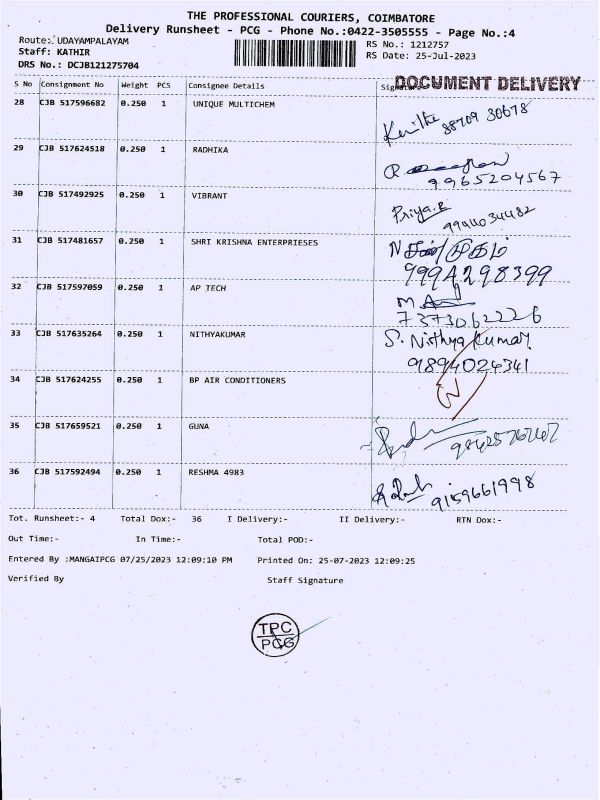 THE PROFESSIONAL COURIERS, COIMBATORE
Delivery Runsheet - PCG - Phone No.:0422-3505555 - Page No.:4
Route:.UDAYAMPALAYAM
RS No.: 1212757
Staff: KATHIR
RS Date: 25-Jul-2023
DRS No.: DCJB121275704
DOCUMENT DELIVERY
S No Consignment No Weight PCS Consignee Details
28 CJB 517596682 0.250 1 UNIQUE MULTICHEM
88709 30678
29 CJB 517624518 0.250 1 RADHIKA
9965204567
30 CJB 517492925 0.250 1 VIBRANT Priya.R
9944034482
31 CJB 517481657 0.250 1 SHRI KRISHNA ENTERPRIESES
9994298399
32 CJB 517597059 0.250 1 AP TECH
7373062226
33 CJB 517635264 0.250 1 NITHYAKUMAR S. Nithya Kumar
9894024341
34 CJB 517624255 0.250 1 BP AIR CONDITIONERS
35 CJB 517659521 0.250 1 GUNA
36 CJB 517592494 0.250 1 RESHMA 4983
9159661998
Tot. Runsheet:- 4 Total Dox:- 36 I Delivery:- II Delivery:- RTN Dox:-
Out Time:- In Time:- Total POD:-
Entered By :MANGAIPCG 07/25/2023 12:09:10 PM Printed On: 25-07-2023 12:09:25
Verified By Staff Signature
TPC
PCG